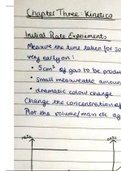 Chapter Three - Kinetics
Initial Rate Experiments
Measure the time taken for so
very early on:
• 5cm³ of gas to be produ
• small measurable amoun
• dramatic colour change
Change the concentration of
Plot the volume/mass etc ag
rate
rate